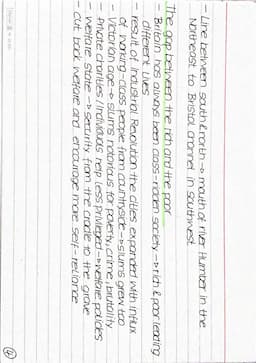 - Line between south & north → mouth of river Humber in the
Northeast to Bristol channel in Southwest
The gap between the rich and the poor
- Britain has always been class-ridden society → rich & poor leading
different lives
- result of Industrial Revolution the cities expanded with influx
of working-class people from countryside → slums grew too
- Victorian age → slums notorious for poverty, crime, brutality
- Private charities / individuals help less privileged → welfare policies
- Welfare state → security from the cradle to the grave
- Cut back welfare and encourage more self-reliance